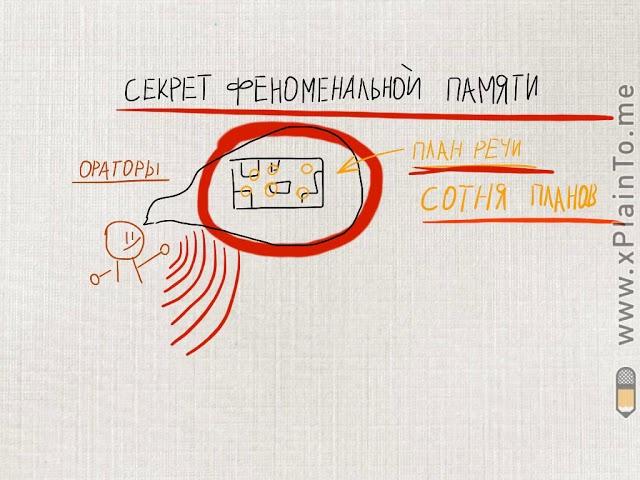 СЕКРЕТ ФЕНОМЕНАЛЬНОЙ ПАМЯТИ
ОРАТОРЫ
ПЛАН РЕЧИ
СОТНЯ ПЛАНОВ
www.xPlainTo.me